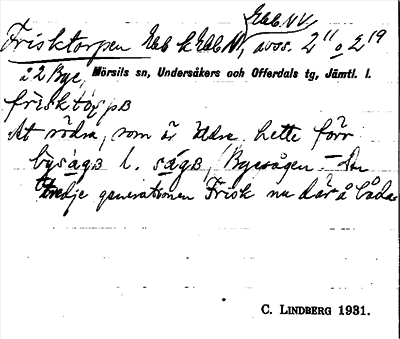 Ebl. NV
Frisktorpen Ebl k Ebl N, avss. 2¹¹ o 2¹⁹
i 2 Bye, Mörsils sn, Undersåkers och Offerdals tg, Jämtl. l.
frisktorpɞ
At södra, som är äldre hette förr
bysågɞ l. sågɞ, Byssågen – Den
tredje generationen Frisk nu där å båda
C. LINDBERG 1931.